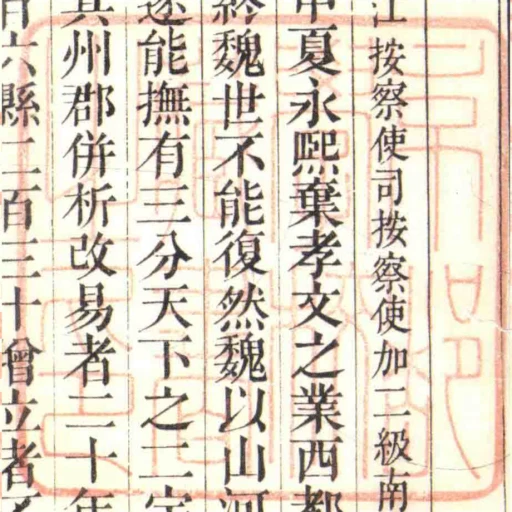 江按察使司按察使加二級南
中夏永熙棄孝文之業西都
終魏世不能復然魏以山河
遂能撫有三分天下之二
其州郡併析改易者二十年
百六縣二百三十曾立者